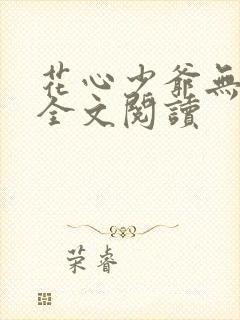 花心少爺無
全文閱讀
荣睿